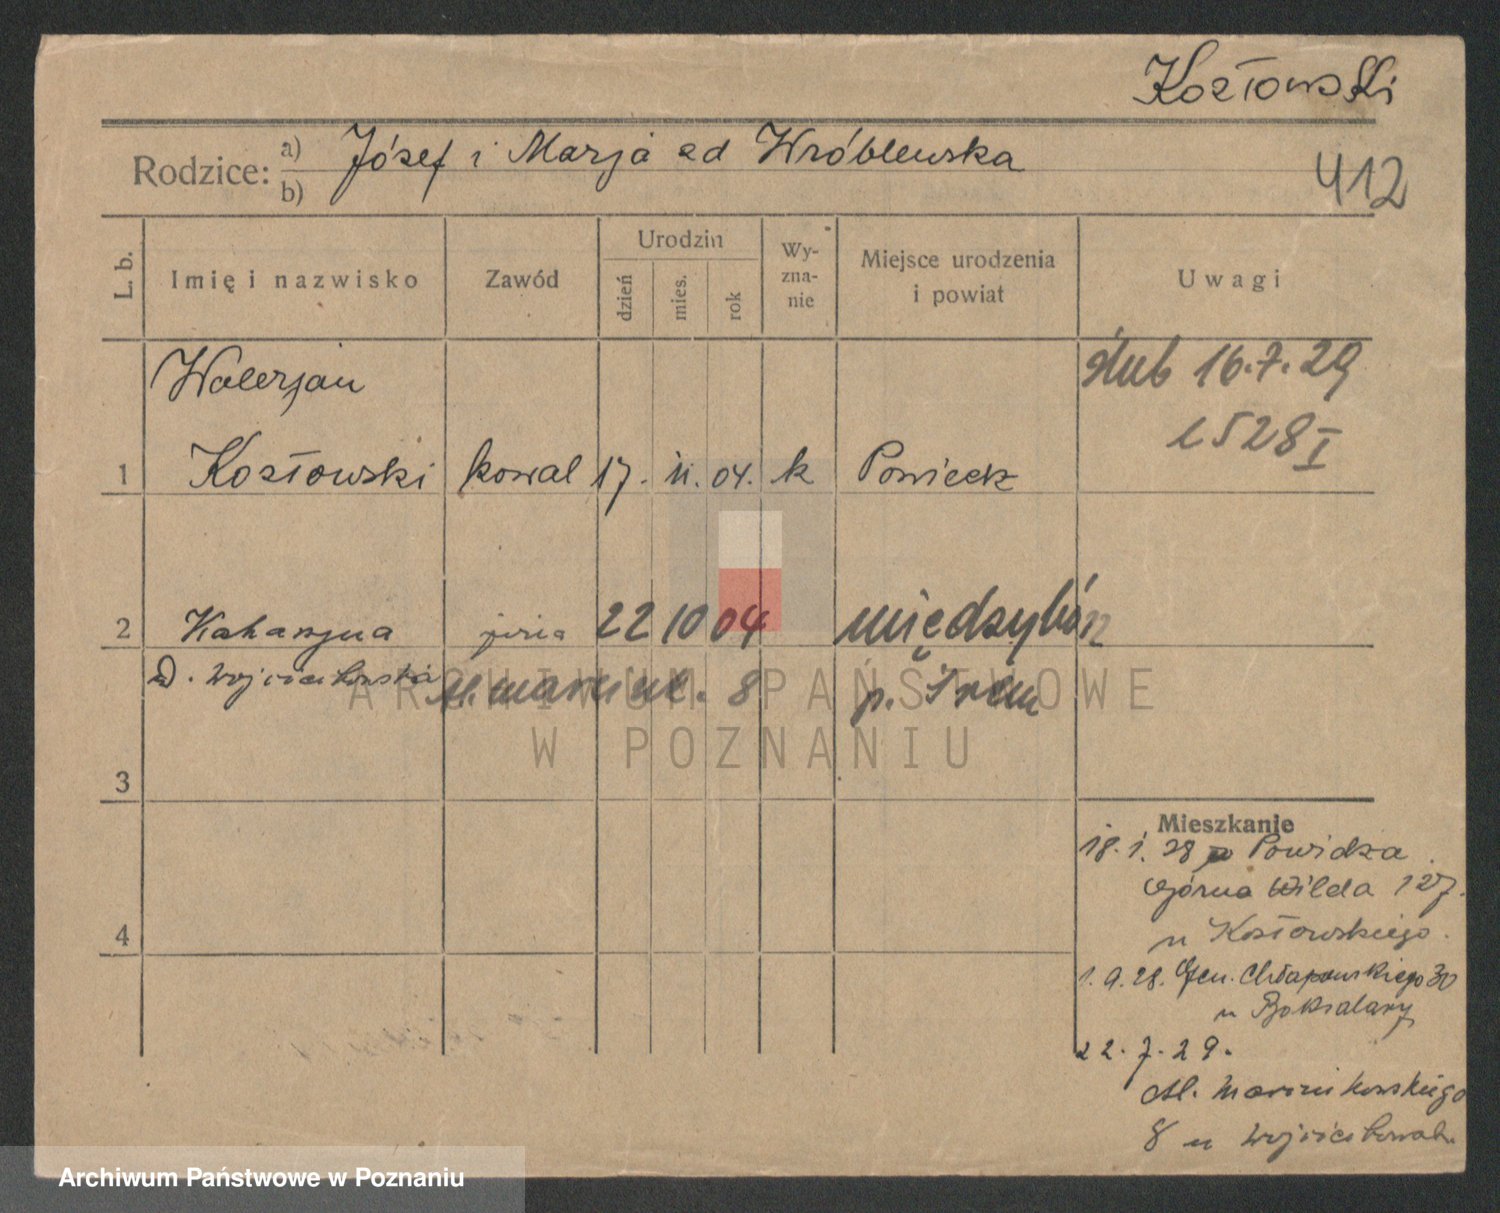 Kozłowski
Rodzice: a) Józef i Marja zd Wróblewska
b)
412
L. b. Imię i nazwisko Zawód Urodzin dzień mies. rok Wyznanie Miejsce urodzenia i powiat Uwagi
Walerjan ślub 16.7.29
1528 I
1 Kozłowski kowal 17. 11. 04. k Powiedz
2 Katarzyna 22 10 04 międzybórz
D. Wojciechowska 8 p. Śrem
3
4
Mieszkanie
18.1.28 z Powidza
Górna Wilda 127.
u Kozłowskiego.
1.9.28. Gen. Chłapowskiego 30
u
22.7.29.
Al. Marcinkowskiego
8 u
ARCHIWUM PAŃSTWOWE
W POZNANIU
Archiwum Państwowe w Poznaniu